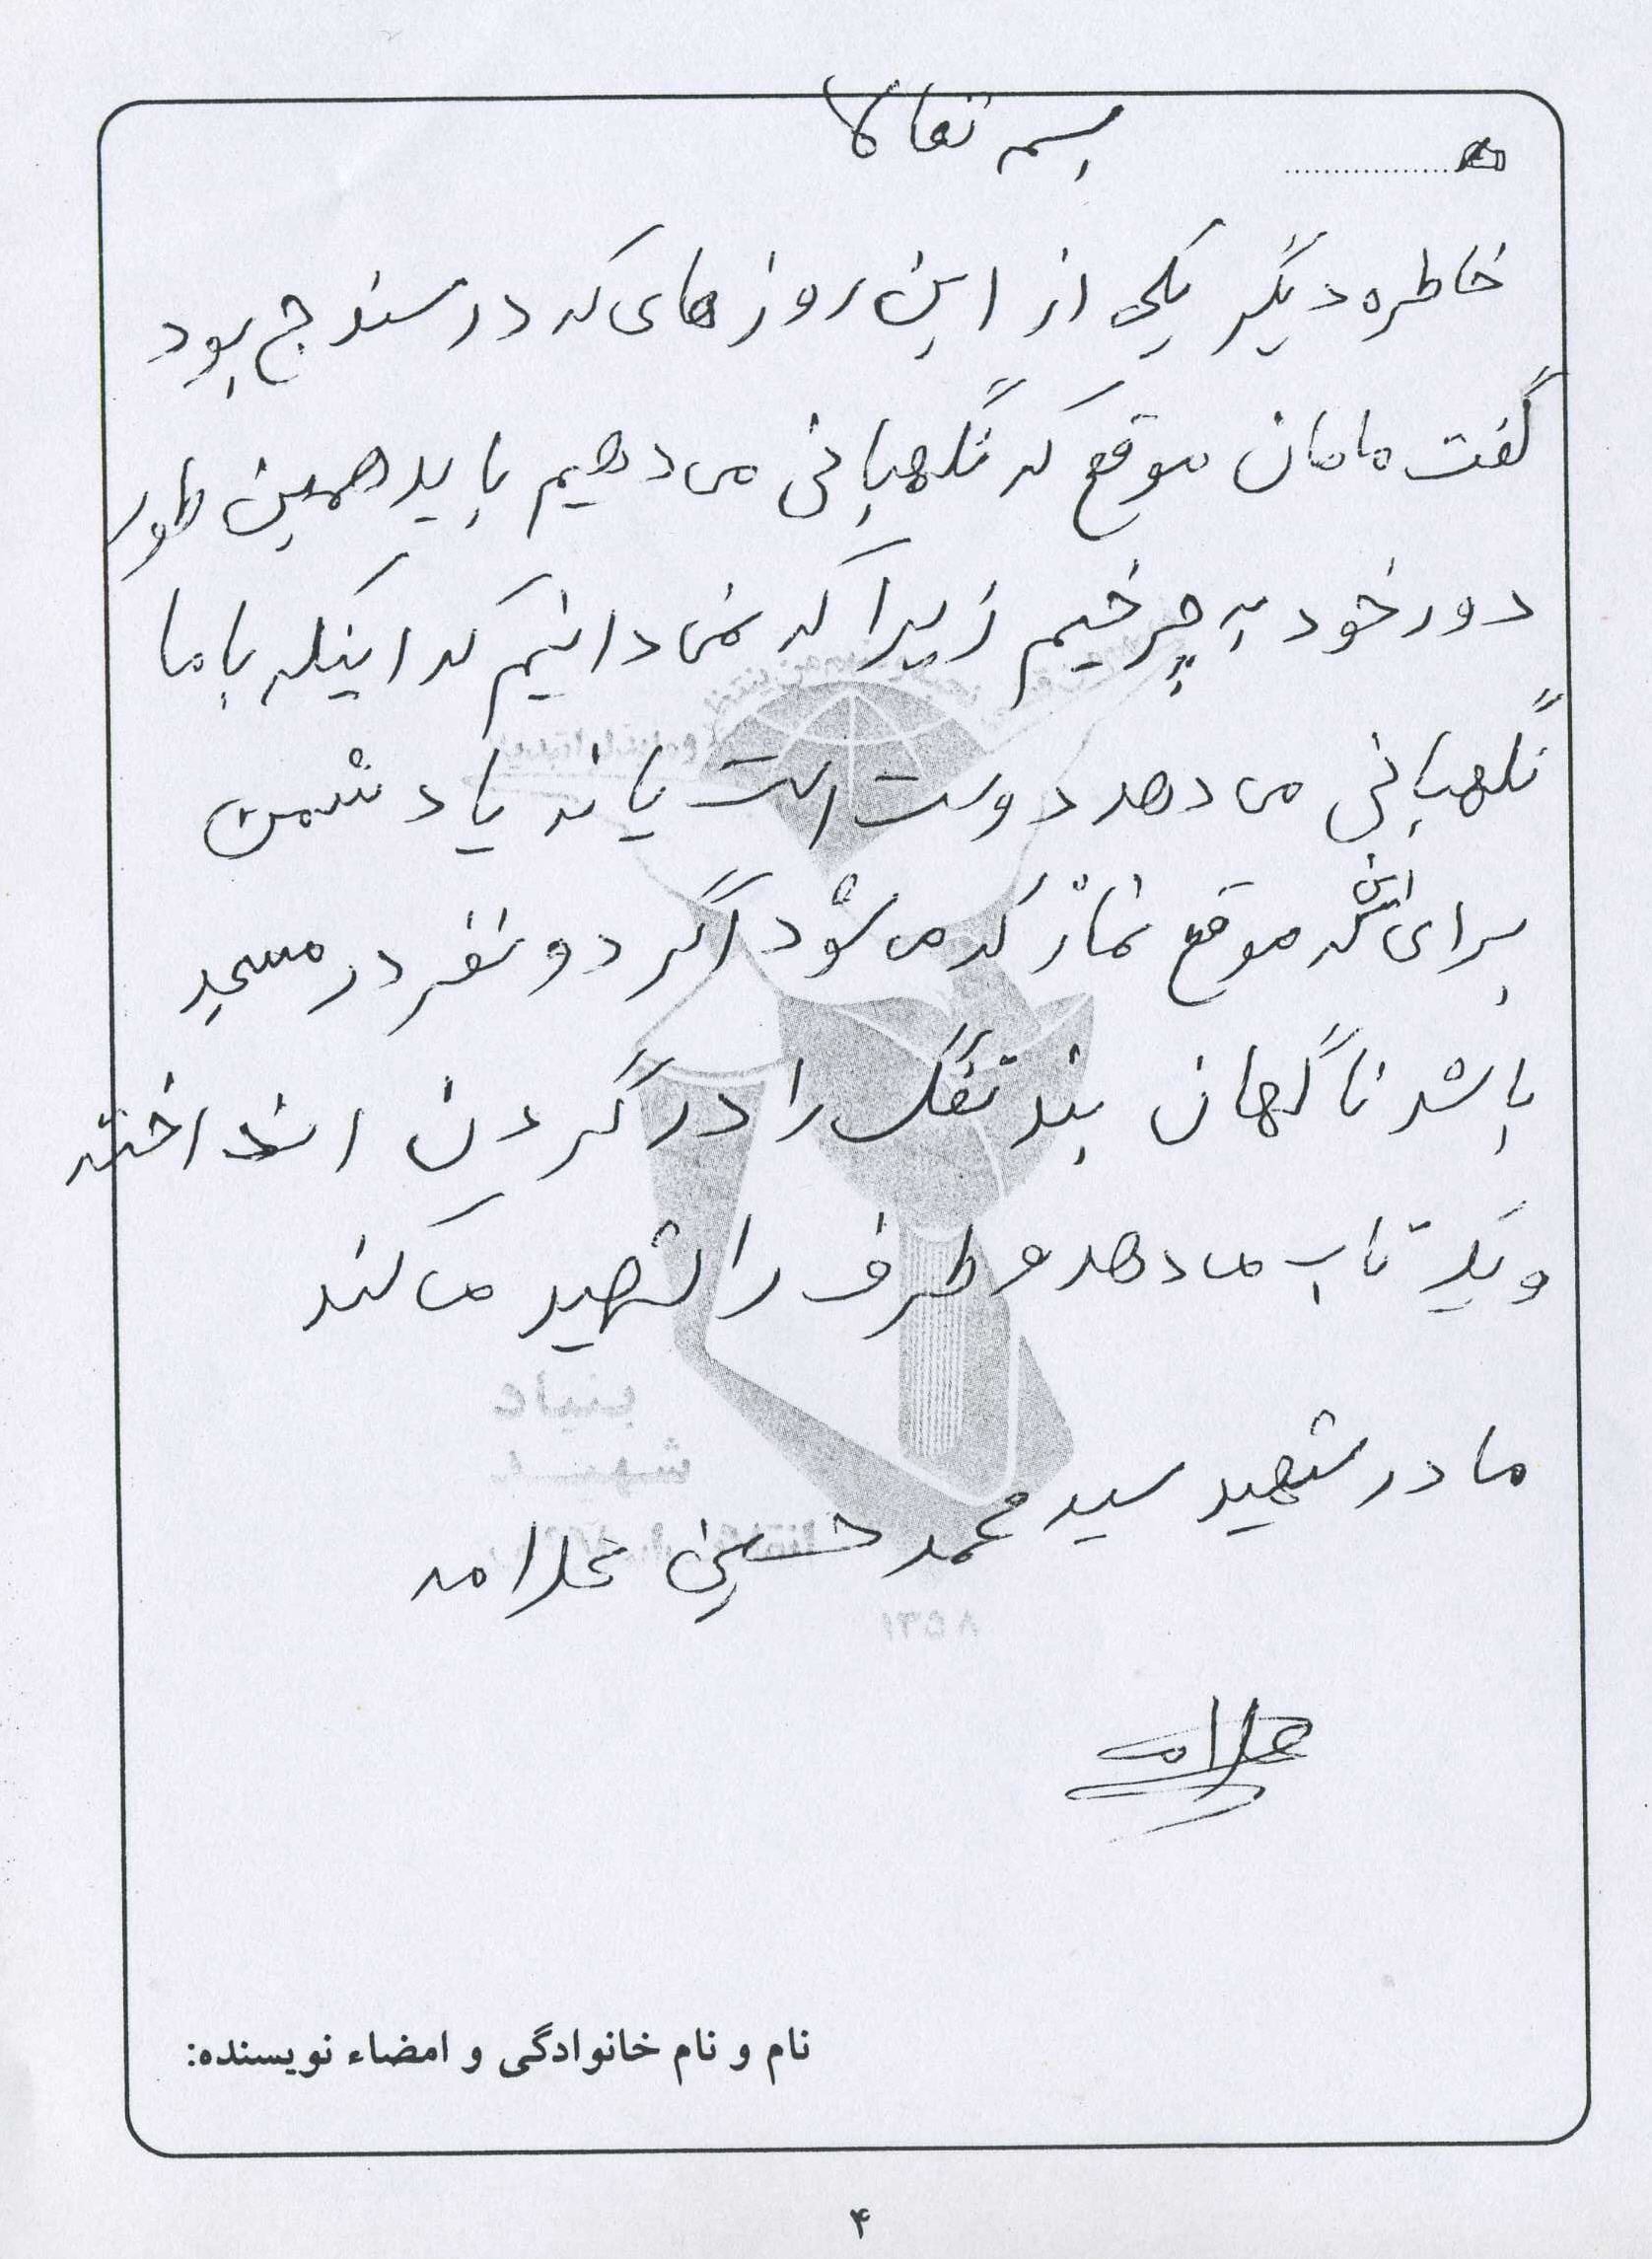 بسمه تعالا
خاطره دیگر یکی از این روزهای که در سنندج بود
گفت مامان موقع که نگهبانی می دهیم باید همین طور
دور خود به چرخیم زیرا که نمی دانیم که اینکه با ما
نگهبانی می دهد دوست است یا نه یا دشمن
برای این که موقع نماز که می شود اگر دو نفر در مسجد
باشد ناگهان بند تفنگ را در گردن انداخته
و یک تاب می دهد و طرف را شهید می کند
مادر شهید سید محمد حسین علامه
علامه
نام و نام خانوادگی و امضاء نویسنده:
۴